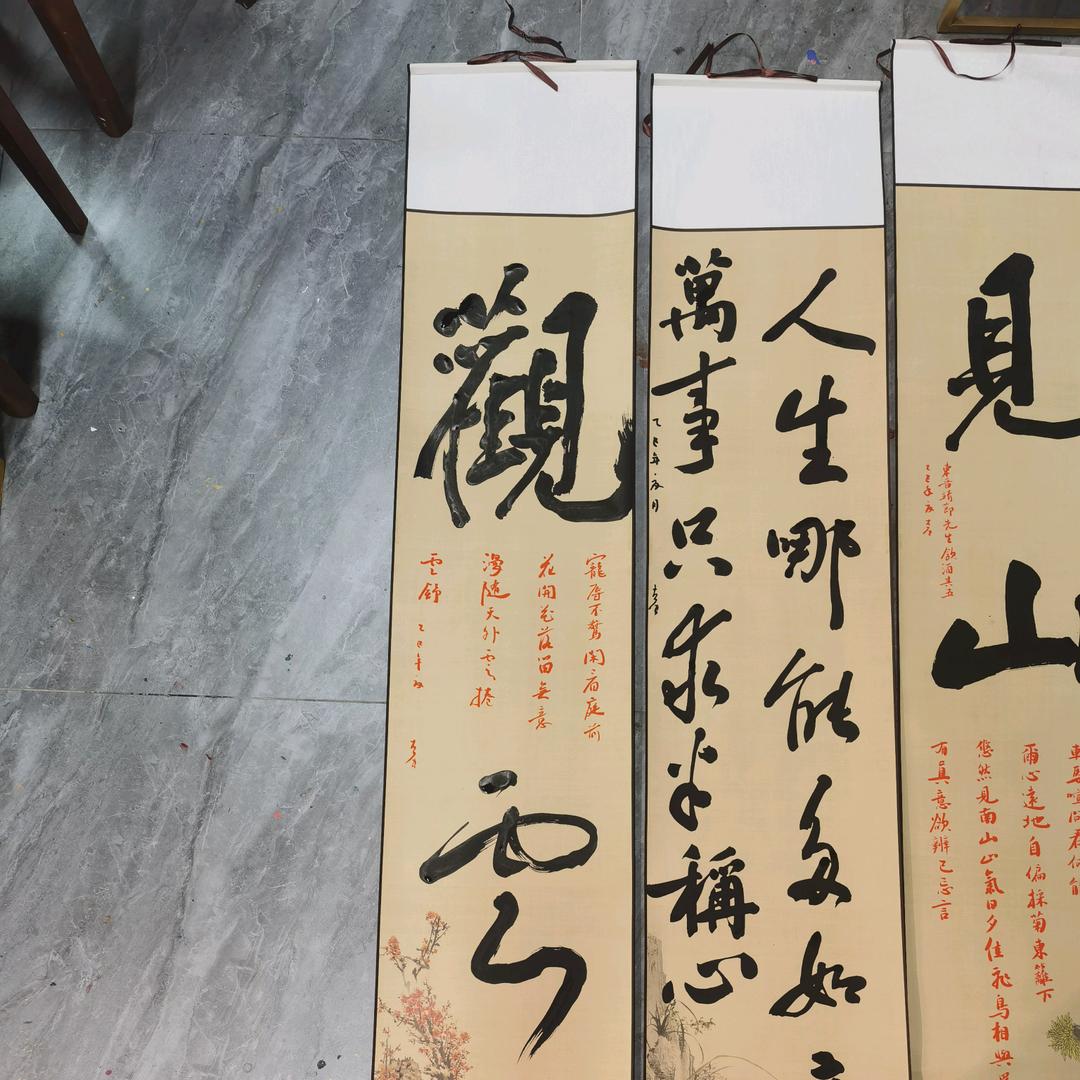 觀雲
寵辱不驚閑看庭前
花開花落留無意
漫隨天外雲捲
雲舒 乙巳年
人生哪能多如
萬事只求半稱心
乙巳年 月
見山
東晉靖節先生飲酒其五
乙巳年
車馬喧問君何能
爾心遠地自偏採菊東籬下
悠然見南山山氣日夕佳飛鳥相與
有真意欲辨已忘言